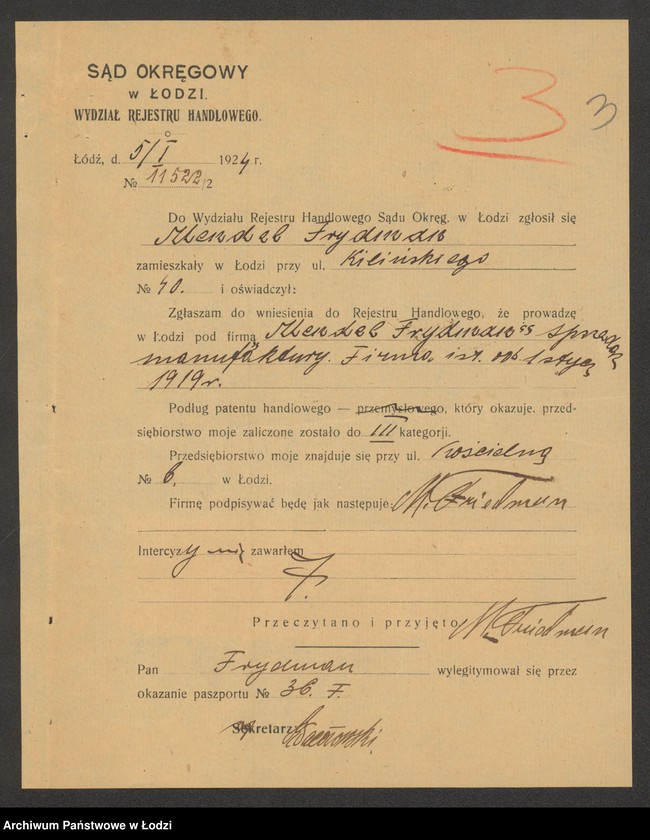 SĄD OKRĘGOWY
w ŁODZI.
WYDZIAŁ REJESTRU HANDLOWEGO.
3 3
Łódź, d. 5/I 1924 r.
№ 11522/2
Do Wydziału Rejestru Handlowego Sądu Okręg. w Łodzi zgłosił się
Mendel Frydman
zamieszkały w Łodzi przy ul. Kilińskiego
№ 40. i oświadczył:
Zgłaszam do wniesienia do Rejestru Handlowego, że prowadzę
w Łodzi pod firmą „Mendel Frydman" sprzedaż
manufaktury. Firma ist. od 1 stycz
1919 r.
Podług patentu handlowego — przemysłowego, który okazuję, przed-
siębiorstwo moje zaliczone zostało do III kategorji.
Przedsiębiorstwo moje znajduje się przy ul. Kościelną
№ 6. w Łodzi.
Firmę podpisywać będę jak następuje: M. Friedman
Intercyzy nie zawarłem
Przeczytano i przyjęto M. Friedman
Pan Frydman wylegitymował się przez
okazanie paszportu № 36. F.
Sekretarz
Archiwum Państwowe w Łodzi